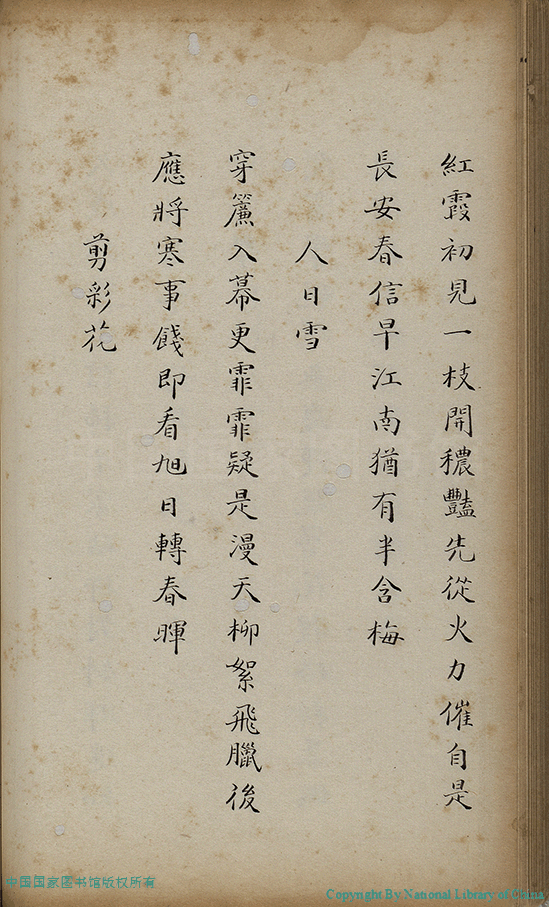 紅霞初見一枝開穠豔先從火力催自是
長安春信早江南猶有半含梅
人日雪
穿簾入幕更霏霏疑是漫天柳絮飛臘後
應將寒事餞即看旭日轉春暉
剪彩花
中国国家图书馆版权所有
Copyright By National Library of China